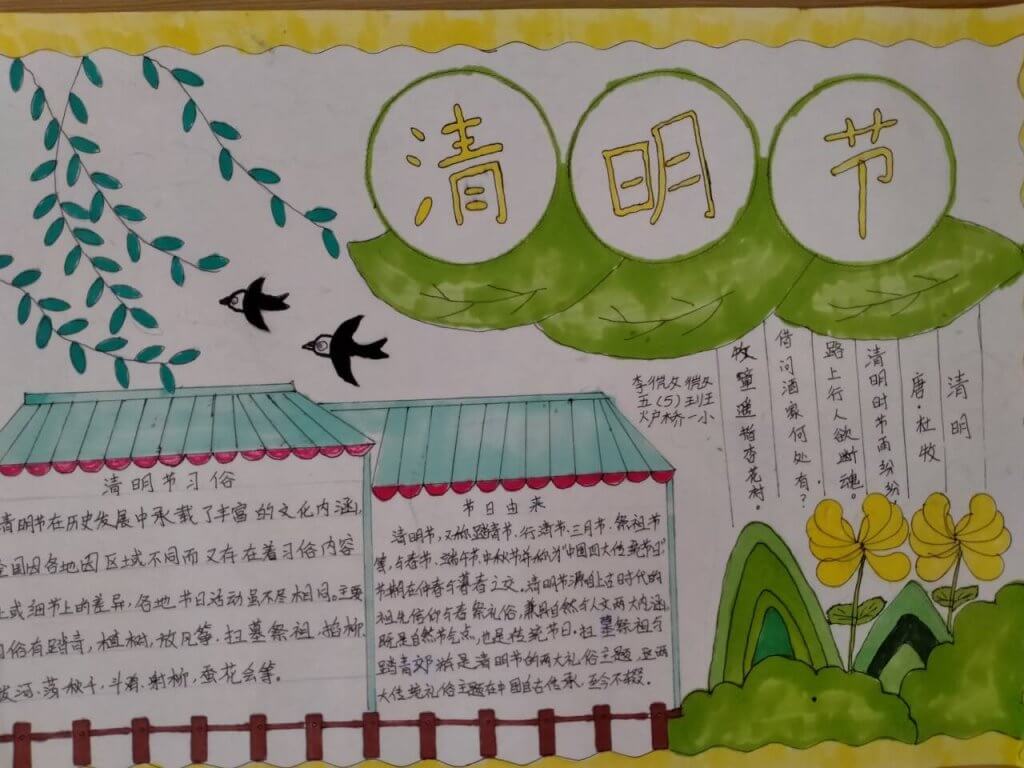 清明节
清明
唐·杜牧
清明时节雨纷纷
路上行人欲断魂。
借问酒家何处有?
牧童遥指杏花村。
李恺文
五(5)班
炉桥一小
清明节习俗
清明节在历史发展中承载了丰富的文化内涵,
全国因各地因区域不同而又存在着习俗内容
上或细节上的差异,各地节日活动虽不尽相同。主要
习俗有踏青,植树,放风筝,扫墓祭祖,插柳,
拔河、荡秋千,斗鸡,射柳,蚕花会等。
节日由来
清明节,又称踏青节、行清节、三月节、祭祖节
等,与春节、端午节、中秋节并称为"中国四大传统节日"。
节期在仲春与暮春之交。清明节源自上古时代的
祖先信仰与春祭礼俗,兼具自然与人文两大内涵,
既是自然节气点,也是传统节日。扫墓祭祖与
踏青郊游是清明节的两大礼俗主题,这两
大传统礼俗主题在中国自古传承,至今不辍。